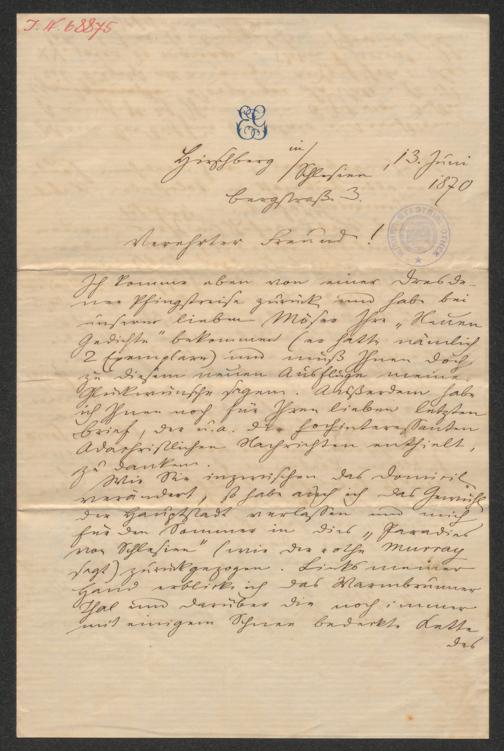 J. N. 68875
Hirschberg in/Schlesien, 13. Juni
1870
Bergstraße 3.
Verehrter Freund!
Ich komme eben von einer Dresde-
ner Pfingstreise zurück und habe bei
unserem lieben Möser Ihre „Neuen
Gedichte" bekommen (er hatte nämlich
2 Exemplare) und muß Ihnen doch
zu diesem neuen Ausfluge meine
Glückwünsche sagen. Außerdem habe
ich Ihnen noch für Ihren lieben letzten
Brief, der u. a. die hochinteressanten
Nachrichten enthielt,
zu danken.
Wie Sie inzwischen das Domicil
verändert, so habe auch ich das Gewühl
der Hauptstadt verlassen und mich
für den Sommer in dies „Paradies
von Schlesien" (wie der rothe Murray
sagt) zurückgezogen. Links meiner
Hand erblicke ich das Warmbrunner
Thal und darüber die noch immer
mit einigem Schnee bedeckte Kette
des